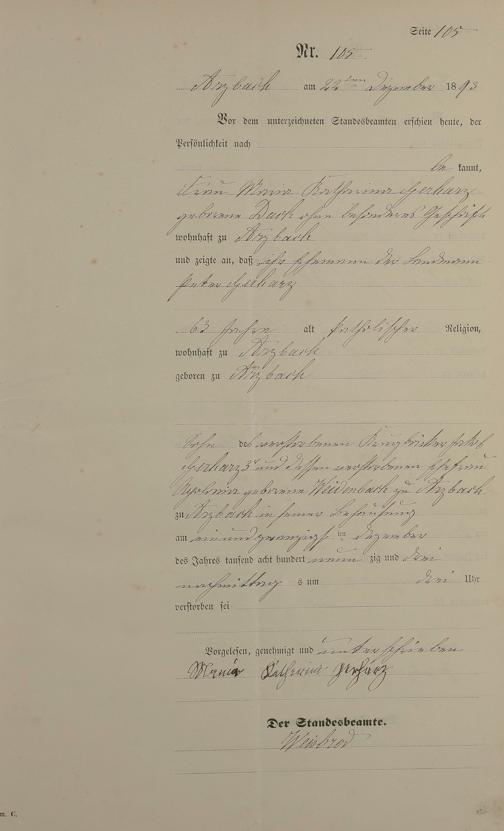 Seite 105
Nr. 105
Arzbach am 22ten Dezember 1893
Vor dem unterzeichneten Standesbeamten erschien heute, der
Persönlichkeit nach
be kannt,
Frau Maria Katharina Gerharz
geborene Dack ohne besonderes Geschäft
wohnhaft zu Arzbach
und zeigte an, daß ihr Ehemann der Landmann
Peter Gerharz
63 Jahre alt katholischer Religion,
wohnhaft zu Arzbach
geboren zu Arzbach
Sohn des verstorbenen
Gerharz und dessen verstorbenen Ehefrau
Apolonia geborene Weidenbach zu Arzbach
zu Arzbach in seiner Behausung
am einundzwanzigsten Dezember
des Jahres tausend acht hundert neun zig und drei
nachmittag s um drei Uhr
verstorben sei
Vorgelesen, genehmigt und unterschrieben
Maria Katharina Gerharz
Der Standesbeamte.
Weisbrod
m. C.